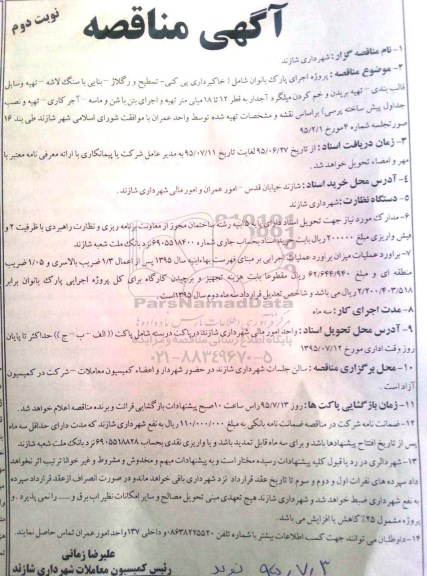 آگهی مناقصه
نوبت دوم
۱- نام مناقصه گزار: شهرداری شازند
۲- موضوع مناقصه: پروژه اجرای پارک بانوان شامل ( خاکبرداری پی کنی- تسطیح و رگلاژ - بنایی با سنگ لاشه - تهیه وسایل
قالب بندی - تهیه بریدن و خم کردن میلگرد آجدار به قطر ۱۲ تا ۱۸ میلی متر تهیه و اجرای بتن با شن و ماسه - آجر کاری - تهیه و نصب
جداول پیش ساخته پرسی) براساس نقشه و مشخصات تهیه شده توسط واحد عمران با موافقت شورای اسلامی شهر شازند طی بند ۱۶
صورتجلسه شماره ۴ مورخ ۹۵/۲/۱
۳- زمان دریافت اسناد: از تاریخ ۹۵/۰۶/۲۷ لغایت تاریخ ۹۵/۰۷/۱۱ به مدیر عامل شرکت یا پیمانکاری با ارائه معرفی نامه معتبر با
مهر و امضاء تحویل خواهد شد.
۴- آدرس محل خرید اسناد: شازند خیابان قدس - امور عمران و امور مالی شهرداری شازند.
۵- دستگاه نظارت: شهرداری شازند
۶- مدارک مورد نیاز جهت تحویل اسناد رشته ساختمان مجوز از معاونت برنامه ریزی و نظارت راهبردی با ظرفیت ۲ و
فیش واریزی مبلغ ۲۰۰۰۰۰ ریال بابت خرید اسناد بحساب جاری شماره ۶۹۰۵۵۱۸۴۰۰ نزد بانک ملت شعبه شازند
۷- برآورد عملیات میزان برآورد عملیات اجرایی بر مبنای فهرست بهاء ابنیه سال ۱۳۹۵ پس از اعمال ۱/۳ ضریب بالاسری و ۱/۰۵ ضریب
منطقه ای و مبلغ ۶۲/۶۴۴/۹۴۰ ریال مقطوعا بابت هزینه تجهیز و برچیدن کارگاه برای کل پروژه اجرایی پارک بانوان برابر
۲/۲۰۰/۴۰۳/۵۱۸ ریال می باشد و شاخص تعدیل قرارداد سه ماه دوم سال ۱۳۹۵ است.
۸- مدت اجرای کار: سه ماه
۹- آدرس محل تحویل اسناد: واحد امور مالی شهرداری شازند دریافت دربسته شامل پاکت (( الف - ب - ج )) حداکثر تا پایان
روز وقت اداری مورخ ۱۳۹۵/۰۷/۱۲
۱۰- محل برگزاری مناقصه: سالن جلسات شهرداری شازند در حضور شهردار و اعضاء کمیسیون معاملات - شرکت در کمیسیون
آزاد است.
۱۱- زمان بازگشایی پاکت ها: روز ۹۵/۷/۱۳ راس ساعت ۱۰ صبح پیشنهادات بازگشایی قرائت و برنده مناقصه اعلام خواهد شد.
۱۲- ضمانت نامه شرکت در مناقصه ضمانت نامه بانکی به مبلغ ۱۱۰/۰۰۰/۰۰۰ ریال به نفع شهرداری شازند که مدت دارای حداقل سه ماه
پس از تاریخ افتتاح پیشنهادها باشد و برای سه ماه قابل تمدید باشد و یا واریزی نقدی بحساب ۶۹۰۵۵۱۸۸۲۸ نزد بانک ملت شعبه شازند
۱۳- شهرداری در رد یا قبول کلیه پیشنهادات رسیده مختار است و به پیشنهادات مبهم و مخدوش و مشروط و غیر خوانا ترتیب اثر نخواهد
داد سپرده های نفرات اول و دوم و سوم تا تاریخ عقد قرارداد نزد شهرداری باقی خواهد ماند و در صورت انصراف از عقد قرارداد سپرده
به نفع شهرداری ضبط خواهد شد و شهرداری شازند هیچ تعهدی مبنی تحویل مصالح و سایر امکانات نظیر آب برق و ..... را نمی پذیرد . و
پروژه مشمول ۲۵٪ کاهش یا افزایش می باشد.
۱۴- داوطلبان می توانند جهت کسب اطلاعات بیشتر با شماره تلفن ۰۸۶۳۸۲۲۷۵۵۲۰ و داخلی ۱۳۷ واحد امور عمران تماس حاصل نمایند.
علیرضا زمانی
رئیس کمیسیون معاملات شهرداری شازند
ParsNamadData
پایگاه اطلاع رسانی مناقصه و مزایده
۰۲۱-۸۸۳۴۹۶۷۰-۵